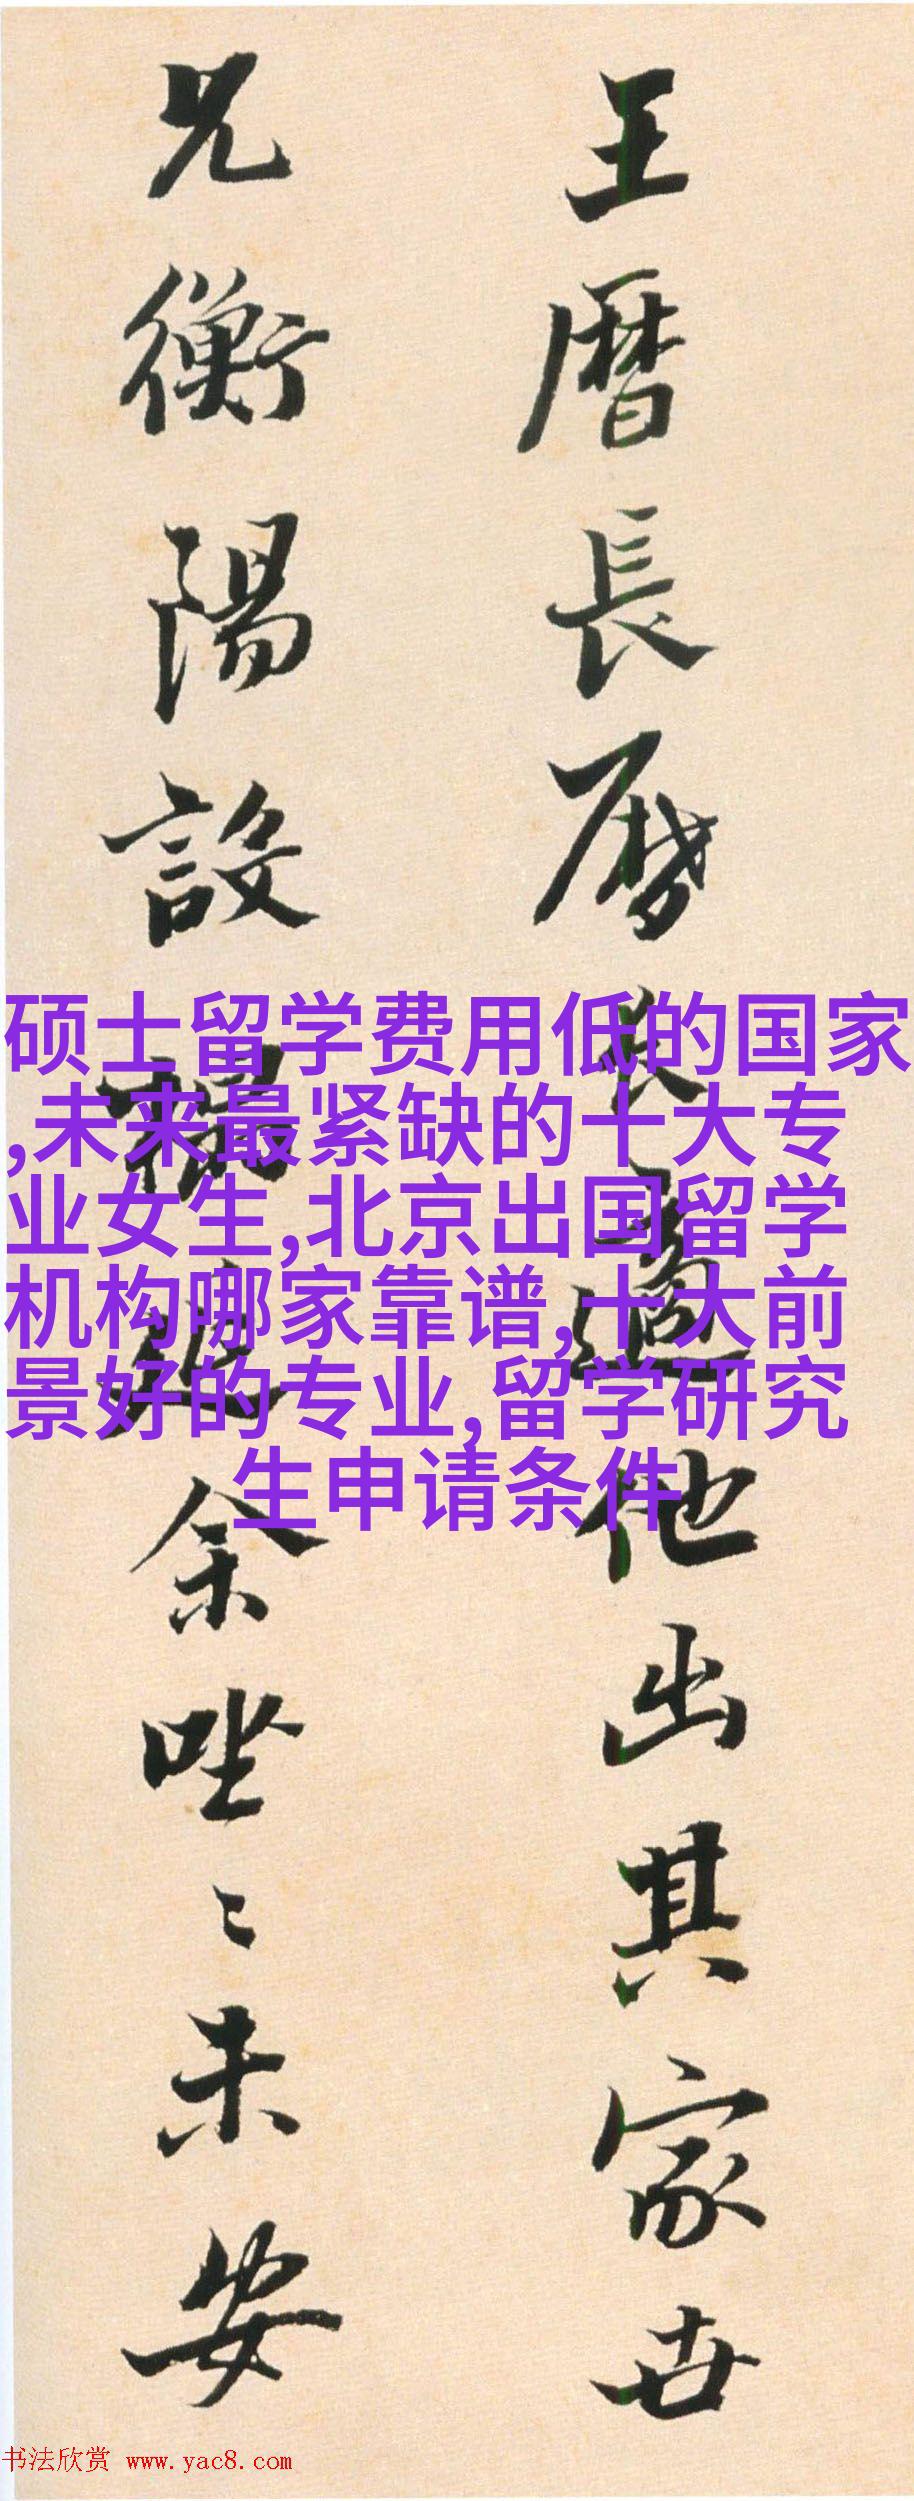 王曆長曆
長適他出其家世
兄衡陽設
榻延余坐
〻未安
硕士留学费用低的国家
,未来最紧缺的十大专
业女生,北京出国留学
机构哪家靠谱,十大前
景好的专业,留学研究
生申请条件
书法欣赏 www.yac8.com